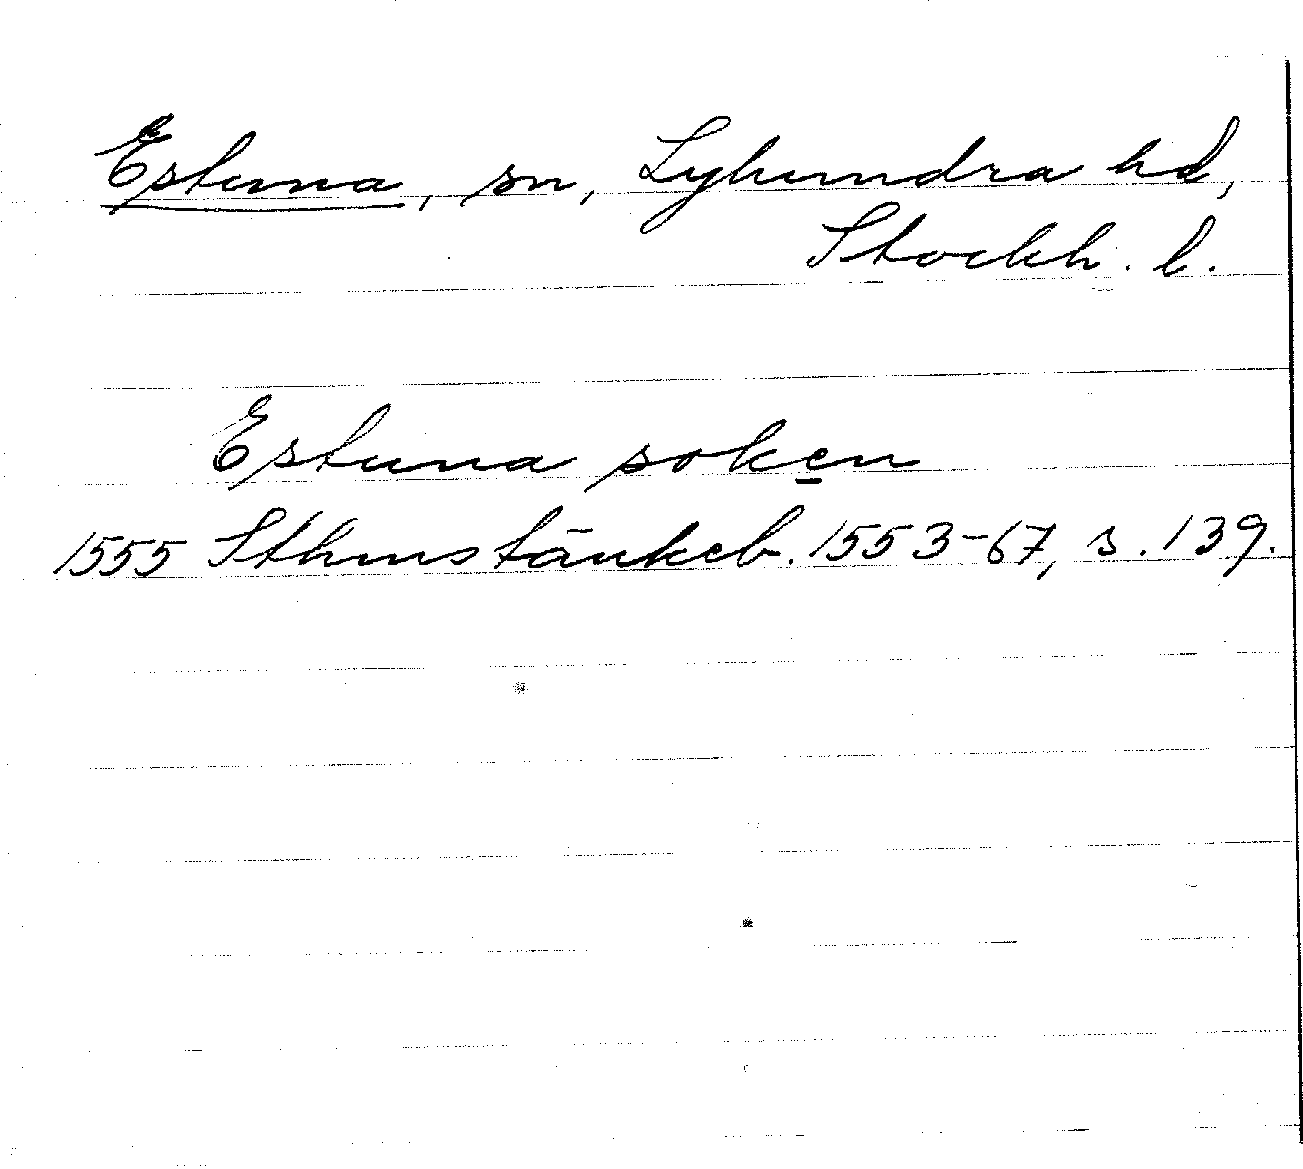 Estuna, sn, Lyhundra hd,
Stockh. l.
Estuna soken
1555 Sthms tänkeb. 1553-67, s. 139.